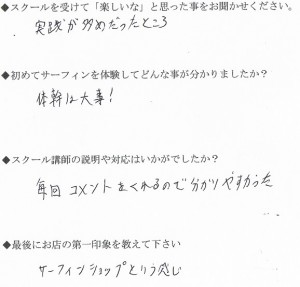 ◆スクールを受けて「楽しいな」と思った事をお聞かせください。
実践が多めだったところ
◆初めてサーフィンを体験してどんな事が分かりましたか？
体幹は大事！
◆スクール講師の説明や対応はいかがでしたか？
毎回コメントをくれるので分かりやすかった
◆最後にお店の第一印象を教えて下さい
サーフィンショップという感じ